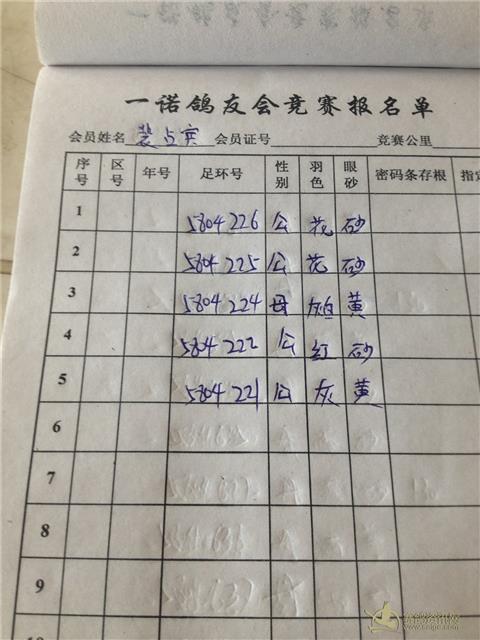 一诺鸽友会竞赛报名单
会员姓名 裴占实 会员证号 竞赛公里
序号 区号 年号 足环号 性别 羽色 眼砂 密码条存根 指定
1 5804226 公 花 砂
2 5804225 公 花 砂
3 5804224 母 灰白 黄
4 5804222 公 红 砂
5 5804221 公 灰 黄
6
7
8
9
10